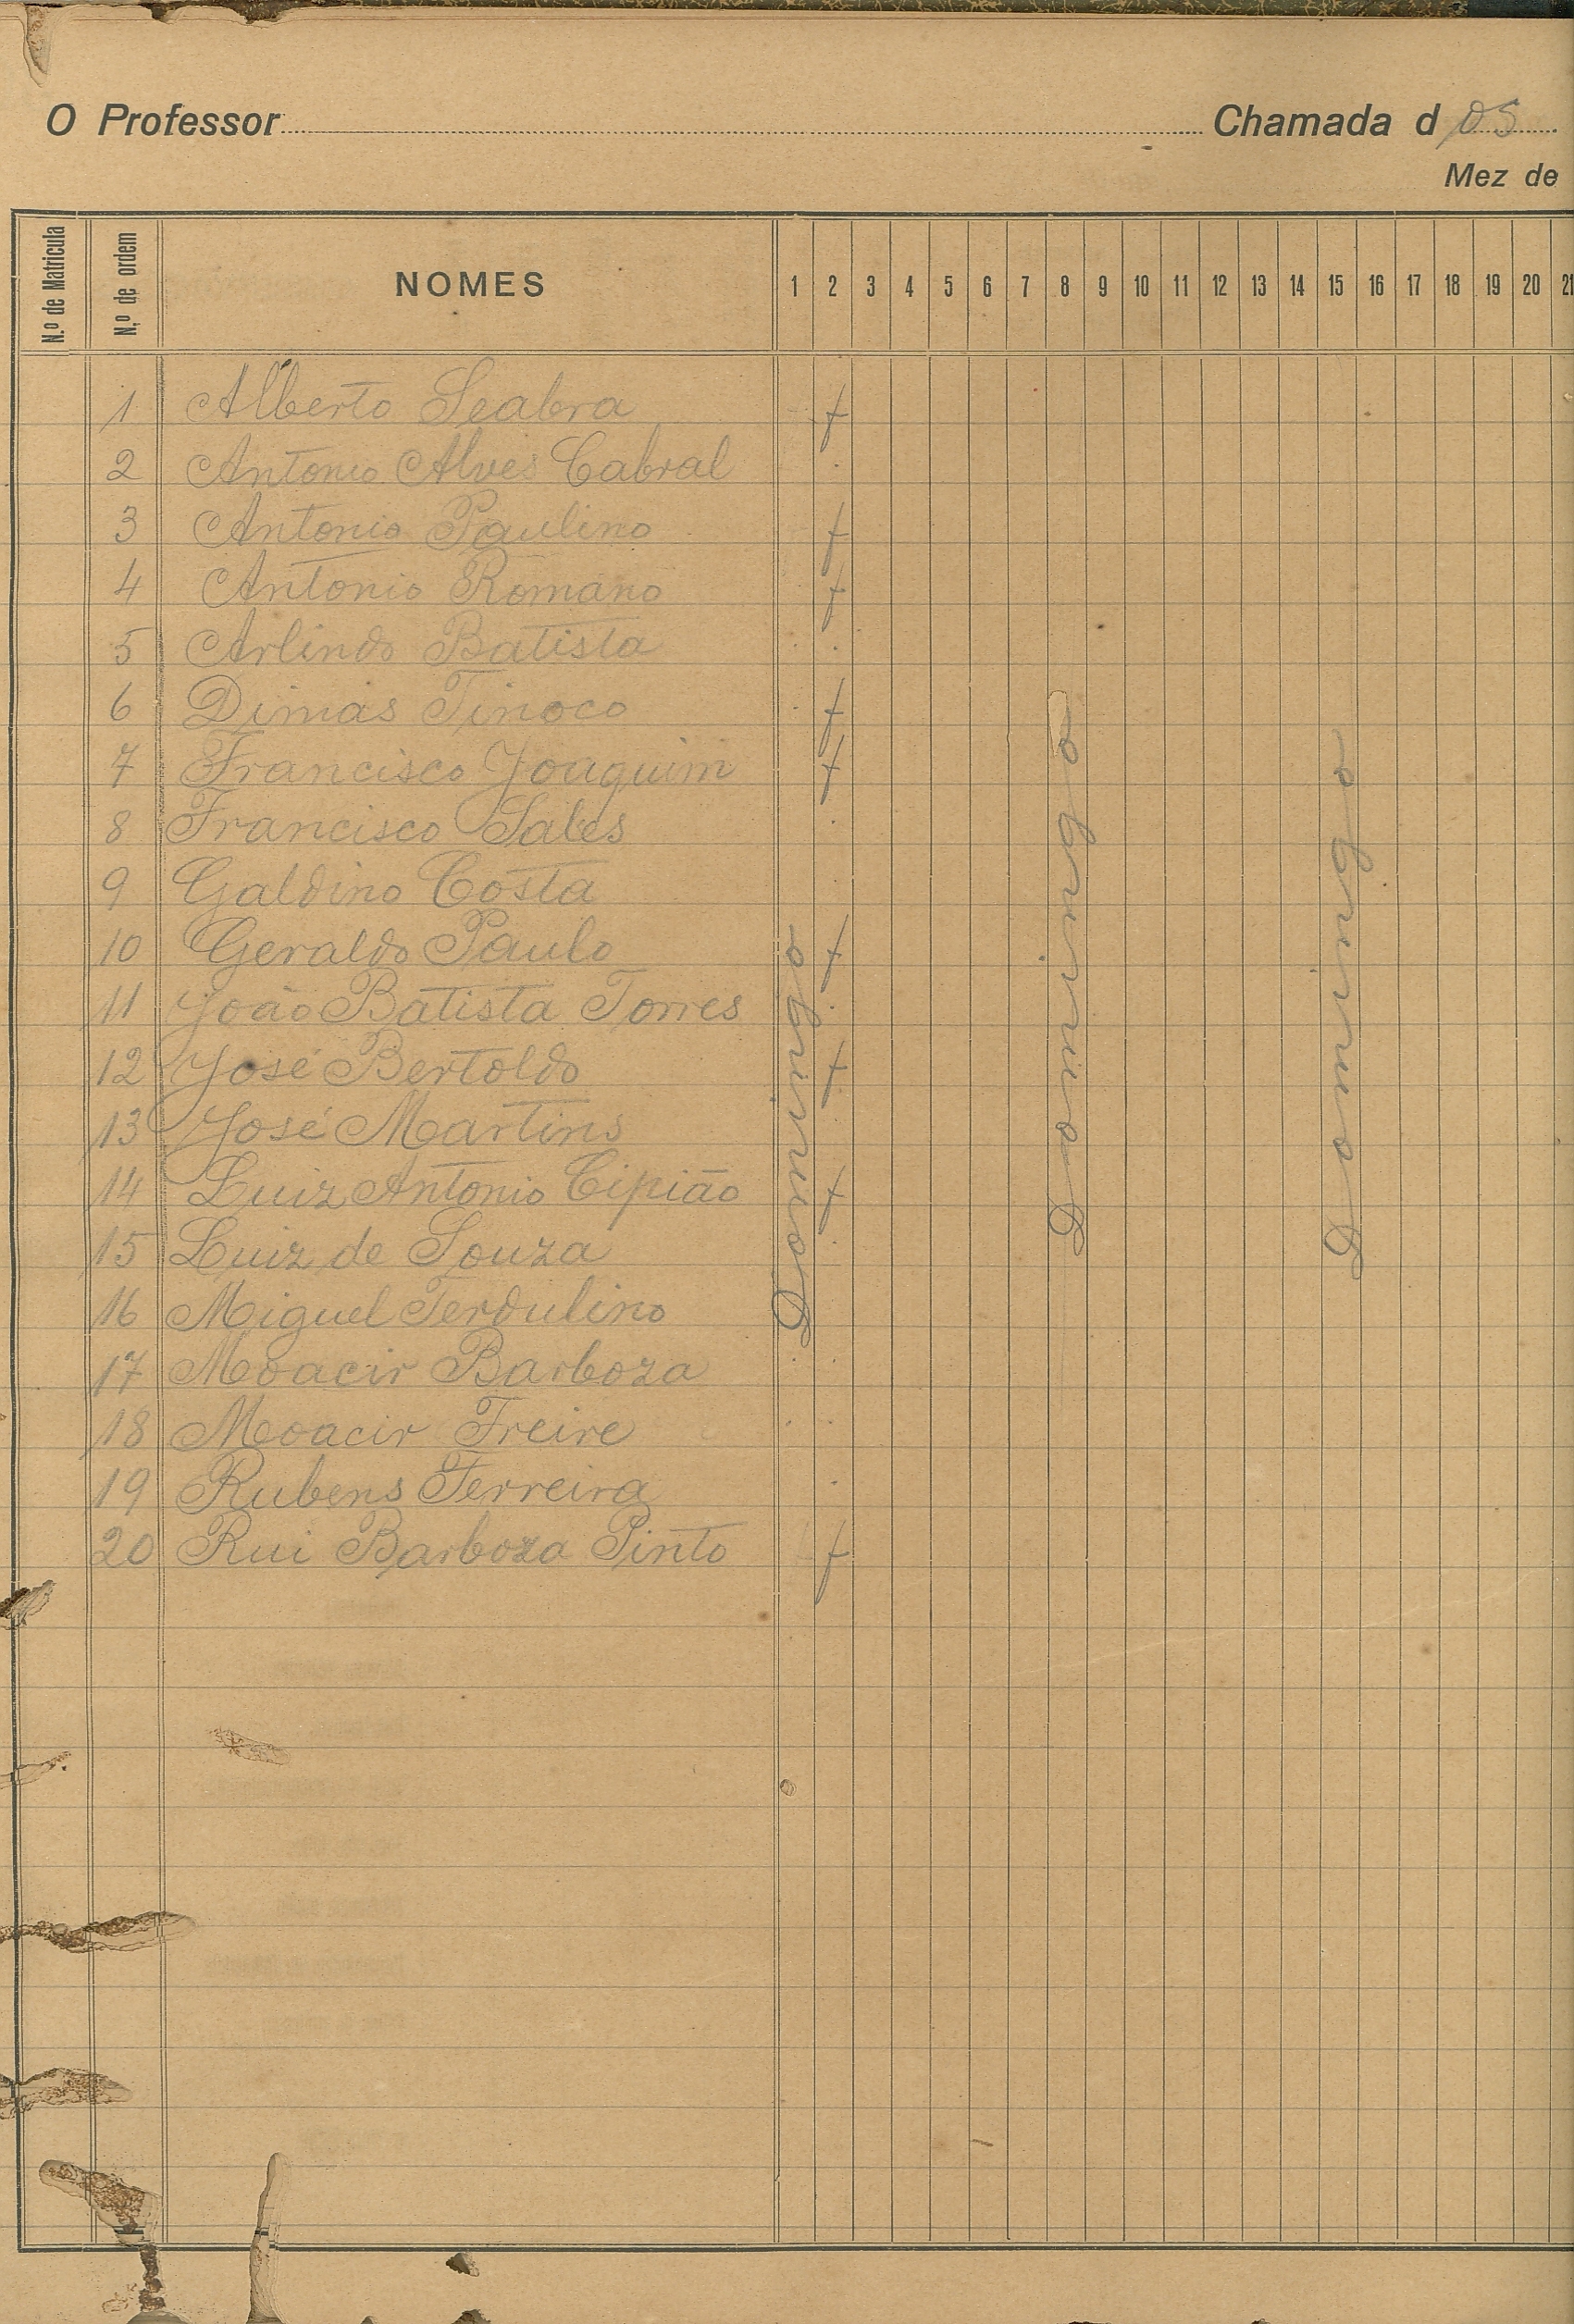 O Professor Chamada dos
Mez de
N.º de Matricula N.º de ordem NOMES 1 2 3 4 5 6 7 8 9 10 11 12 13 14 15 16 17 18 19 20 21
1 Alberto Seabra f
2 Antonio Alves Cabral .
3 Antonio Paulino f
4 Antonio Romano f
5 Arlindo Batista .
6 Dimas Tinoco f
7 Francisco Joaquim f
8 Francisco Sales .
9 Galdino Costa .
10 Geraldo Paulo f
11 João Batista Torres .
12 José Bertoldo f
13 José Martins .
14 Luiz Antonio Cipião f
15 Luiz de Souza .
16 Miguel Terdulino
17 Moacir Barboza .
18 Moacir Freire .
19 Rubens Ferreira .
20 Rui Barboza Pinto f
Domingo
Domingo
Domingo